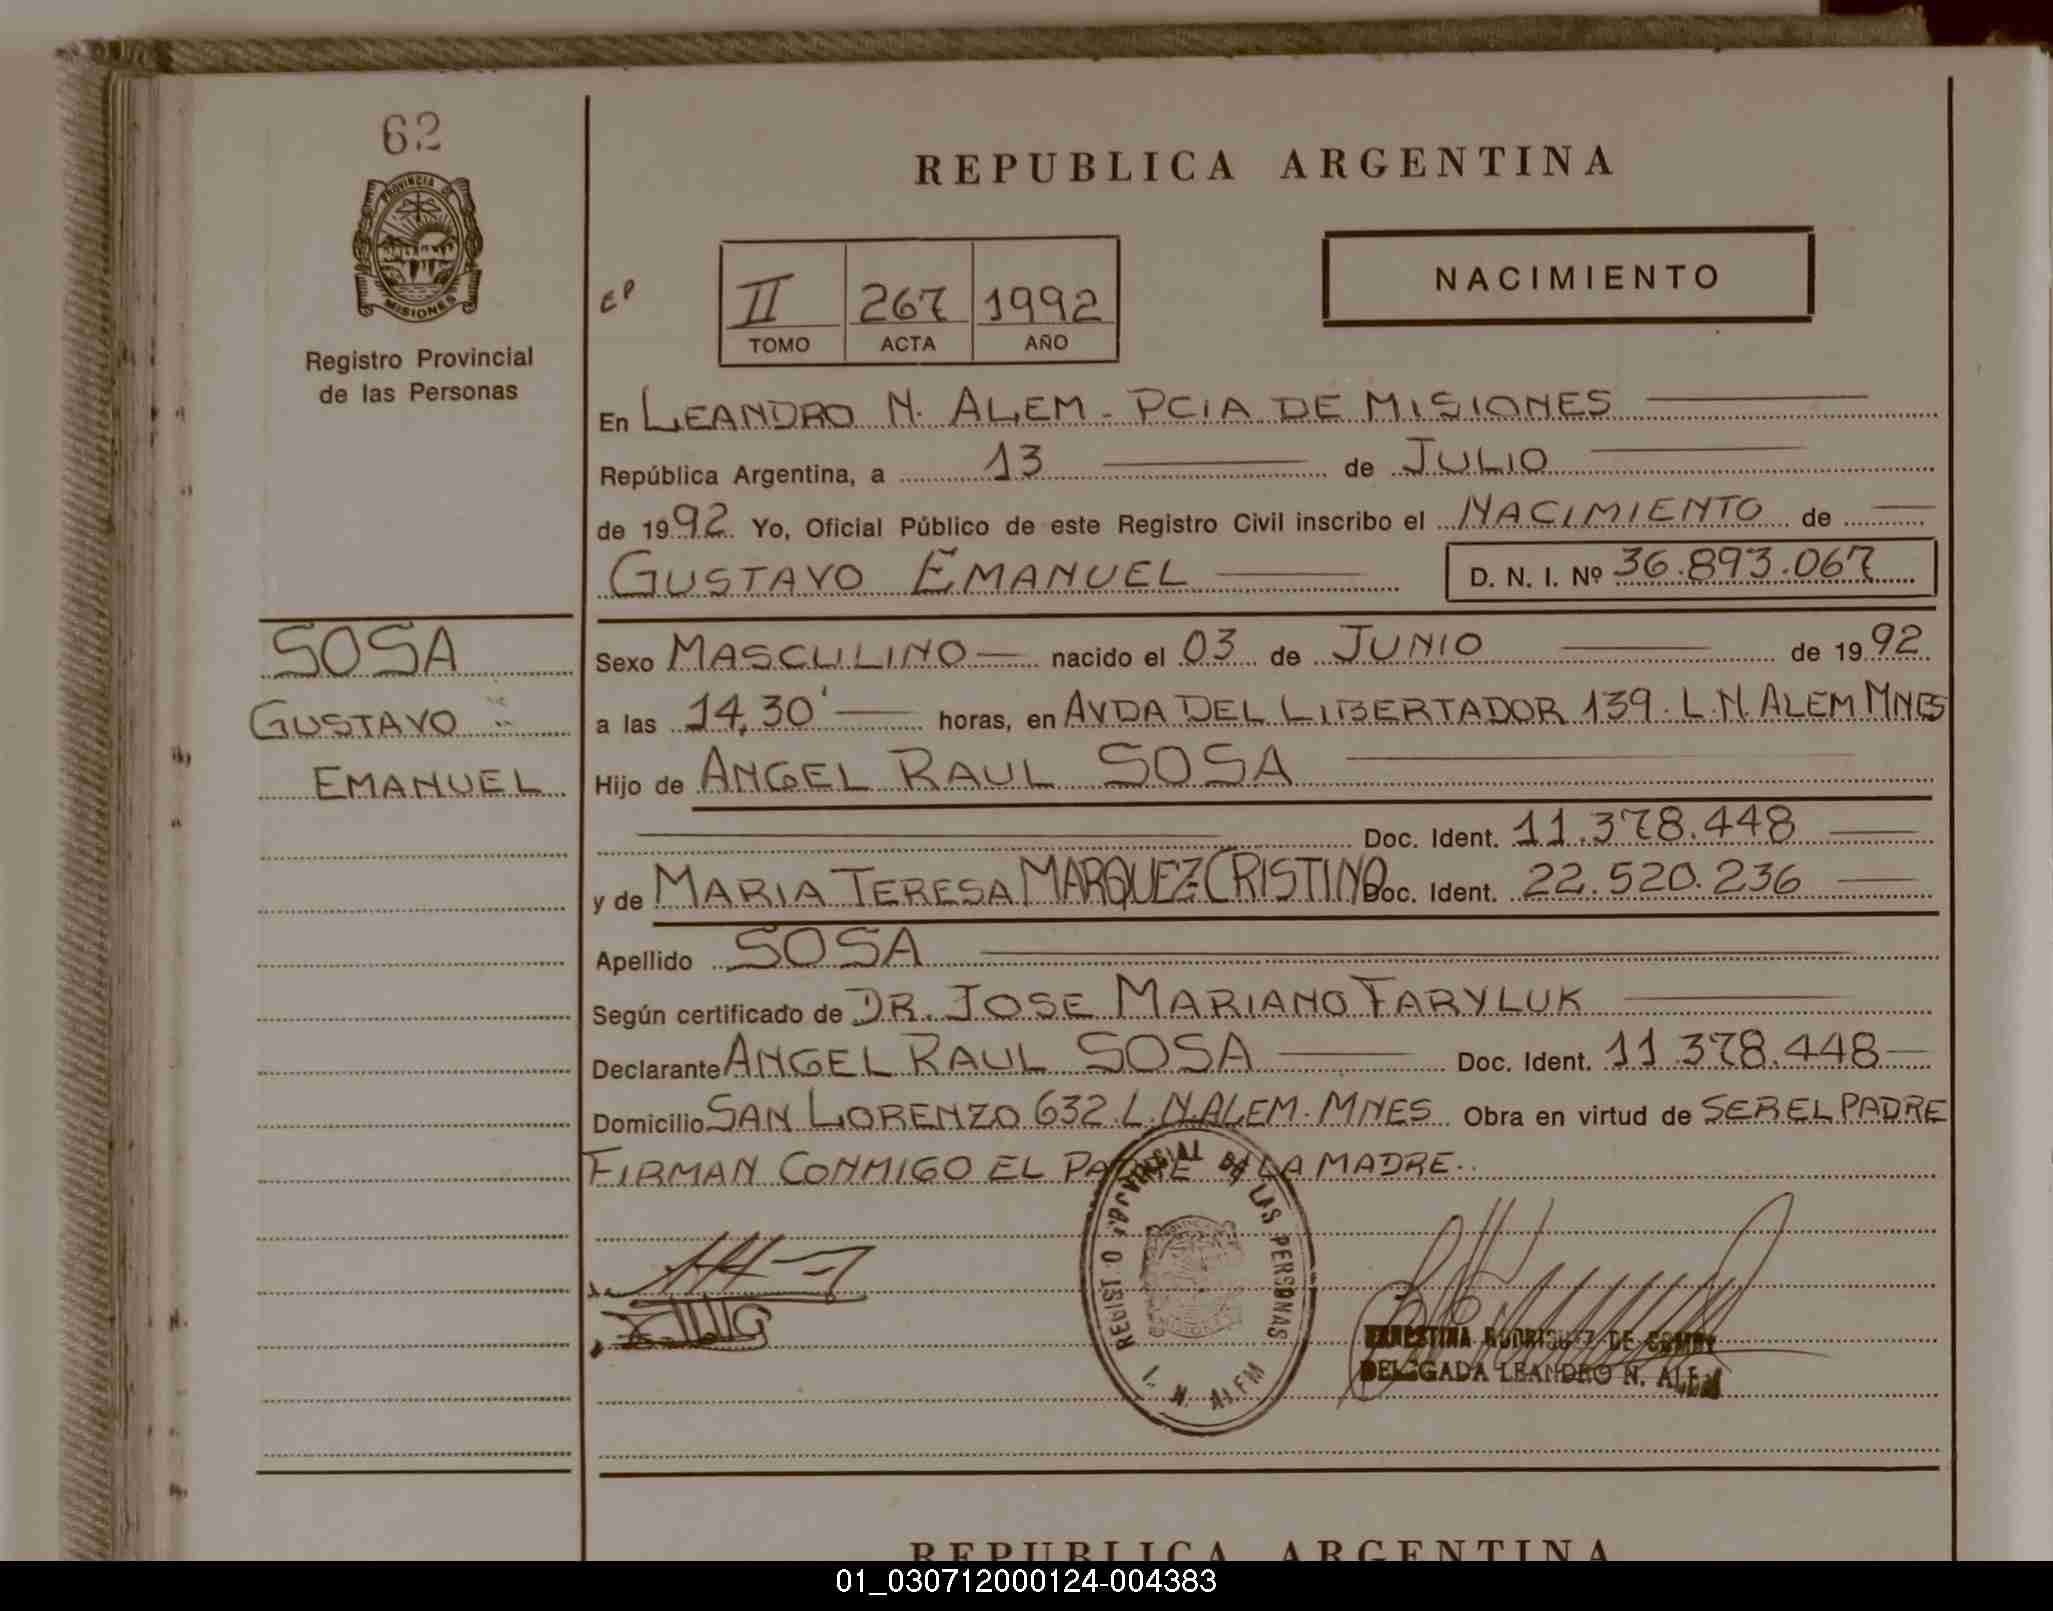 62
PROVINCIA DE
MISIONES
Registro Provincial
de las Personas
SOSA
GUSTAVO
EMANUEL
REPUBLICA ARGENTINA
II 267 1992
TOMO ACTA AÑO
NACIMIENTO
En LEANDRO N. ALEM - PCIA DE MISIONES
República Argentina, a 13 de JULIO
de 1992 Yo, Oficial Público de este Registro Civil inscribo el NACIMIENTO de
GUSTAVO EMANUEL D. N. I. Nº 36.893.067
Sexo MASCULINO nacido el 03 de JUNIO de 1992
a las 14,30' horas, en AVDA DEL LIBERTADOR 139. L.N. ALEM MNES
Hijo de ANGEL RAUL SOSA
Doc. Ident. 11.378.448
y de MARIA TERESA MARQUEZ CRISTINO Doc. Ident. 22.520.236
Apellido SOSA
Según certificado de DR. JOSE MARIANO FARYLUK
Declarante ANGEL RAUL SOSA Doc. Ident. 11.378.448
Domicilio SAN LORENZO 632. L.N. ALEM. MNES Obra en virtud de SER EL PADRE
FIRMAN CONMIGO EL PADRE LA MADRE.
REGISTRO PROVINCIAL DE LAS PERSONAS
L. N. ALEM
ERNESTINA RODRIGUEZ DE
DELEGADA LEANDRO N. ALEM
REPUBLICA ARGENTINA
01_030712000124-004383